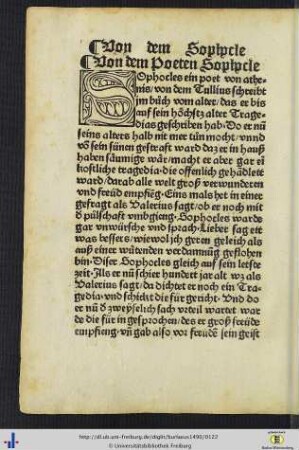 Von dem Sophcle
Von dem Poeten Sophcle
SOphocles ein poet von athe-
nis/ von dem Tullius schreibt
im bůch vom alter/ das er bis
auf sein höchstz alter Trage-
dias geschriben hab. Do er nű
seins alters halb nit mer tůn mocht/ vund
vō sein sünen gestraft ward daz er in hauß
haben säumige wär/ macht er aber gar eī
kostliche tragedia. die offenlich gehädlett
ward/ darab alle welt groß verwundern
vnd freüd empfieg. Eins mals het in einer
gefragt als Valerius sagt/ ob er noch mit
d pülschaft vmbgieng. Sophocles warde
gar vnwürsche vnd sprach. Lieber sag ett
was bessers/ wiewol ich geren geleich als
auß einer wütenden verdamnüg geflohen
bin. Diser Sophocles gleich auf sein letste
zeit. Als er nű schier hundert jar alt wz als
Valerius sagt/ da dichtet er noch ein Tra-
gedia. vnd schickt die für gericht. Vnd do
er nű d zweyfelich sach vrteil wartet war
de die für in gesprochen/ des er groß freüde
empfieng. vn̄ gab also vor freudē sein geist
http://dl.ub.uni-freiburg.de/diglit/burlaeus1490/0122
© Universitätsbibliothek Freiburg